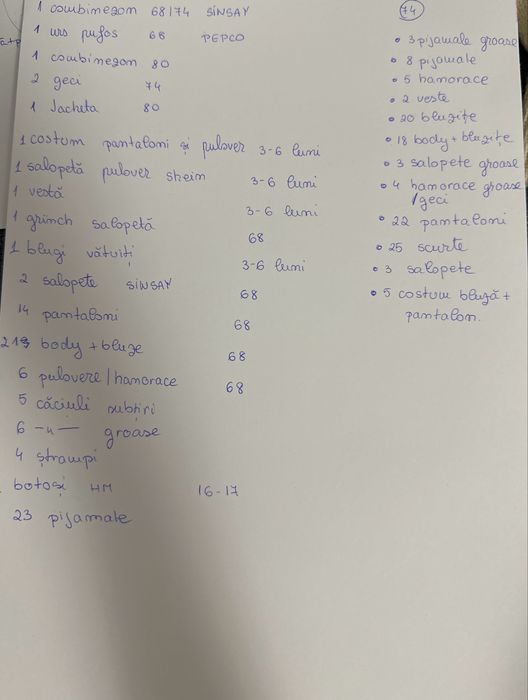 1 combinezom 68/74 SINSAY
1 urs pufos 68 PEPCO
1 combinezom 80
2 geci 74
1 Jacheta 80
1 costum pantaloni și pulover 3-6 luni
1 salopetă pulover sheim 3-6 luni
1 vestă 3-6 luni
1 grinch salopetă 68
1 blugi vătuiți 3-6 luni
2 salopete SINSAY 68
14 pantaloni 68
body + bluze 68
6 pulovere/hamorace 68
5 căciuli subțiri
6 -"- groase
4 ștrampi
botoși HM 16-17
23 pijamale
74
• 3 pijamale groase
• 8 pijamale
• 5 hamorace
• 2 veste
• 20 bluzițe
• 18 body + bluzițe
• 3 salopete groase
• 4 hamorace groase
/geci
• 22 pantaloni
• 25 scurte
• 3 salopete
• 5 costum bluză +
pantalon.